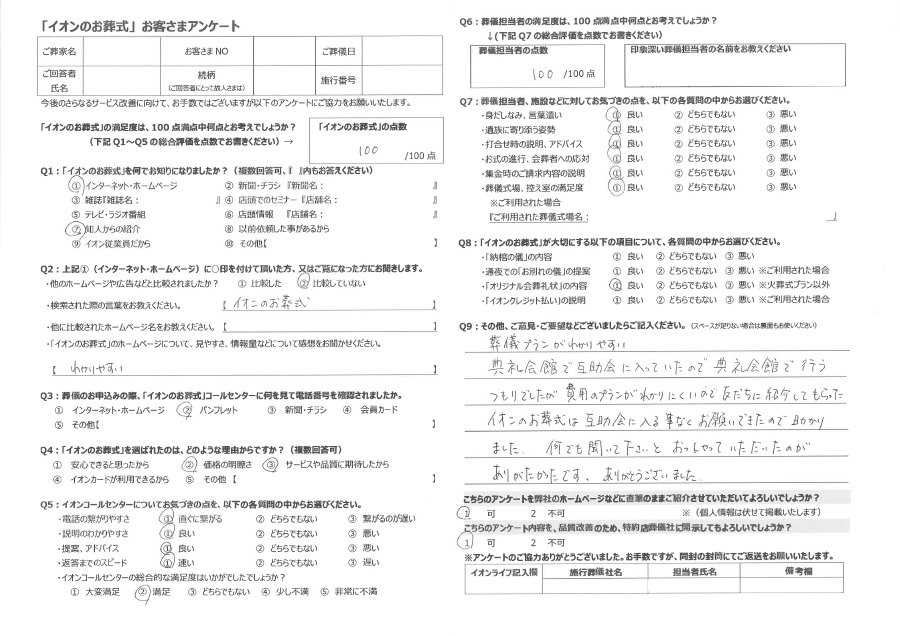 「イオンのお葬式」お客さまアンケート
ご葬家名 お客さまNO ご葬儀日
ご回答者氏名 続柄(ご回答者にとって故人さまは) 施行番号
今後のさらなるサービス改善に向けて、お手数ではございますが以下のアンケートにご協力をお願いいたします。
「イオンのお葬式」の満足度は、100点満点中何点とお考えでしょうか?
(下記Q1~Q5の総合評価を点数でお書きください) →
「イオンのお葬式」の点数
100 /100点
Q1:「イオンのお葬式」を何でお知りになりましたか?(複数回答可、『 』内もお答えください)
① インターネット・ホームページ ② 新聞・チラシ『新聞名: 』
③ 雑誌『雑誌名: 』 ④ 店頭でのセミナー『店舗名: 』
⑤ テレビ・ラジオ番組 ⑥ 店頭情報 『店舗名: 』
⑦ 知人からの紹介 ⑧ 以前依頼した事があるから
⑨ イオン従業員だから ⑩ その他【 】
Q2:上記①(インターネット・ホームページ)に○印を付けて頂いた方、又はご覧になった方にお聞きします。
・他のホームページや広告などと比較されましたか? ① 比較した ② 比較していない
・検索された際の言葉をお教えください。 【 イオンのお葬式 】
・他に比較されたホームページ名をお教えください。【 】
・「イオンのお葬式」のホームページについて、見やすさ、情報量などについて感想をお聞かせください。
【 わかりやすい 】
Q3:葬儀のお申込みの際、「イオンのお葬式」コールセンターに何を見て電話番号を確認されましたか。
① インターネット・ホームページ ② パンフレット ③ 新聞・チラシ ④ 会員カード
⑤ その他【 】
Q4:「イオンのお葬式」を選ばれたのは、どのような理由からですか?(複数回答可)
① 安心できると思ったから ② 価格の明瞭さ ③ サービスや品質に期待したから
④ イオンカードが利用できるから ⑤ その他【 】
Q5:イオンコールセンターについてお気づきの点を、以下の各質問の中からお選びください。
・電話の繋がりやすさ ① 直ぐに繋がる ② どちらでもない ③ 繋がるのが遅い
・説明のわかりやすさ ① 良い ② どちらでもない ③ 悪い
・提案、アドバイス ① 良い ② どちらでもない ③ 悪い
・返答までのスピード ① 速い ② どちらでもない ③ 遅い
・イオンコールセンターの総合的な満足度はいかがでしたでしょうか?
① 大変満足 ② 満足 ③ どちらでもない ④ 少し不満 ⑤ 非常に不満
Q6:葬儀担当者の満足度は、100点満点中何点とお考えでしょうか?
↓(下記Q7の総合評価を点数でお書きください)
葬儀担当者の点数 印象深い葬儀担当者の名前をお教えください
100 /100点
Q7:葬儀担当者、施設などに対してお気づきの点を、以下の各質問の中からお選びください。
・身だしなみ、言葉遣い ① 良い ② どちらでもない ③ 悪い
・遺族に寄り添う姿勢 ① 良い ② どちらでもない ③ 悪い
・打合せ時の説明、アドバイス ① 良い ② どちらでもない ③ 悪い
・お式の進行、会葬者への応対 ① 良い ② どちらでもない ③ 悪い
・集金時のご請求内容の説明 ① 良い ② どちらでもない ③ 悪い
・葬儀式場、控え室の満足度 ① 良い ② どちらでもない ③ 悪い
※ご利用された場合
『ご利用された葬儀式場名: 』
Q8:「イオンのお葬式」が大切にする以下の項目について、各質問の中からお選びください。
・「納棺の儀」の内容 ① 良い ② どちらでもない ③ 悪い
・通夜での「お別れの儀」の提案 ① 良い ② どちらでもない ③ 悪い ※ご利用された場合
・「オリジナル会葬礼状」の内容 ① 良い ② どちらでもない ③ 悪い ※火葬式プラン以外
・「イオンクレジット払い」の説明 ① 良い ② どちらでもない ③ 悪い ※ご利用された場合
Q9:その他、ご意見・ご要望などございましたらご記入ください。(スペースが足りない場合は裏面もお使いください)
葬儀プランがわかりやすい
典礼会館で互助会に入っていたので典礼会館で行う
つもりでしたが費用のプランがわかりにくいので友だちに紹介してもらった
イオンのお葬式は互助会に入る事なくお願いできたので助かり
ました。何でも聞いて下さいとおっしゃっていただいたのが
ありがたかったです。ありがとうございました。
こちらのアンケートを弊社のホームページなどに直筆のままご紹介させていただいてよろしいでしょうか?
1 可 2 不可 ※(個人情報は伏せて掲載いたします)
こちらのアンケート内容を、品質改善のため、特約店葬儀社に開示してもよろしいでしょうか?
1 可 2 不可
※アンケートのご協力ありがとうございました。お手数ですが、同封の封筒にてご返送をお願いいたします。
イオンライフ記入欄 施行葬儀社名 担当者氏名 備考欄